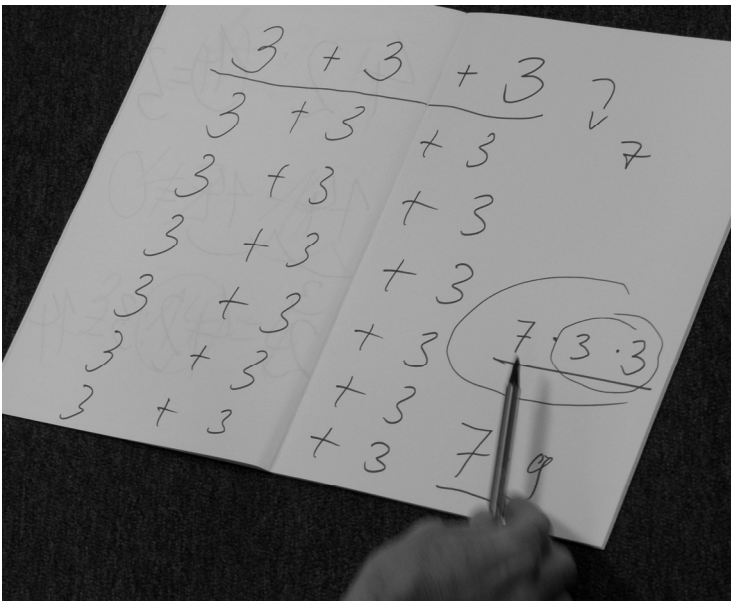 3 + 3 + 3
3 + 3 + 3 7
3 + 3 + 3
3 + 3 + 3
3 + 3 + 3
3 + 3 + 3
3 + 3 + 3
7 · 3 · 3
7 9